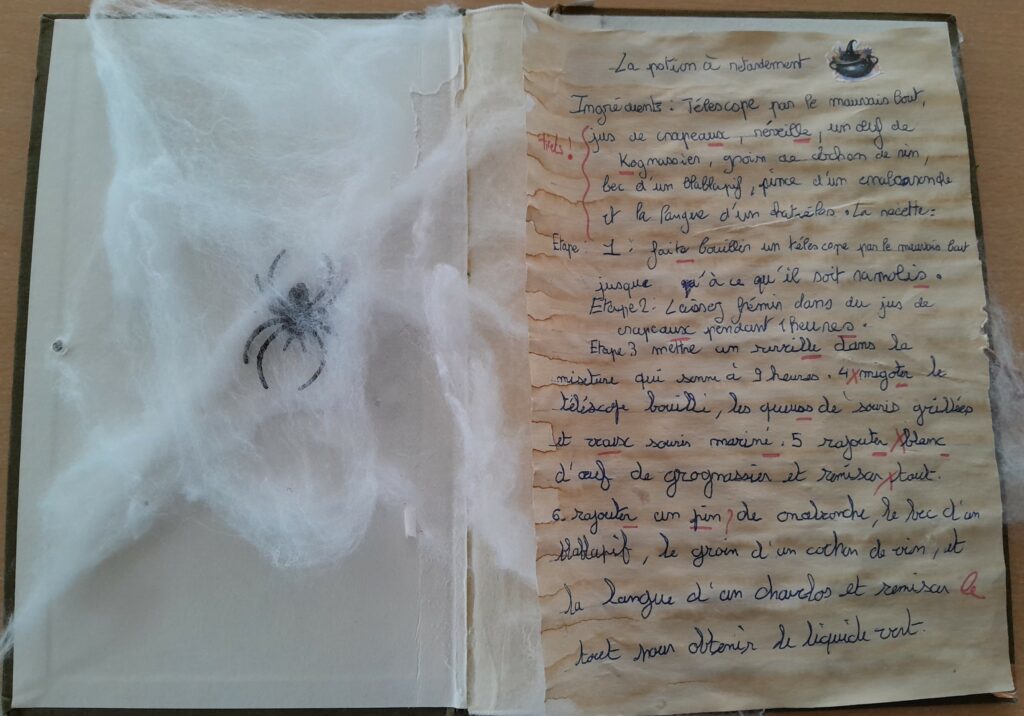 La potion à retardement
Ingrédients : Télescope par le mauvais bout,
jus de crapeaux, réveille, un œuf de
tirets !
Kognassier, groin de cochon de vin,
bec d'un blablapif, pince d'un
et la langue d'un . La recette :
Etape 1 : faite bouillir un télescope par le mauvais bout
jusque qu'à ce qu'il soit ramolis.
Etape 2 : Laissez frémir dans du jus de
crapeaux pendant 1 heures.
Etape 3 mettre un rurveille dans la
mixture qui sonne à 9 heures. 4 x migoter le
téléscope bouilli, les queuss de souris grillées
et vraix souris mariné. 5 rajouter x blanc
d'œuf de grognassier et remixar x tout.
6. rajouter un pin ? de , le bec d'un
blablapif, le groin d'un cochon de vin, et
la langue d'un charclos et remixar le
tout pour obtenir le liquide vert.